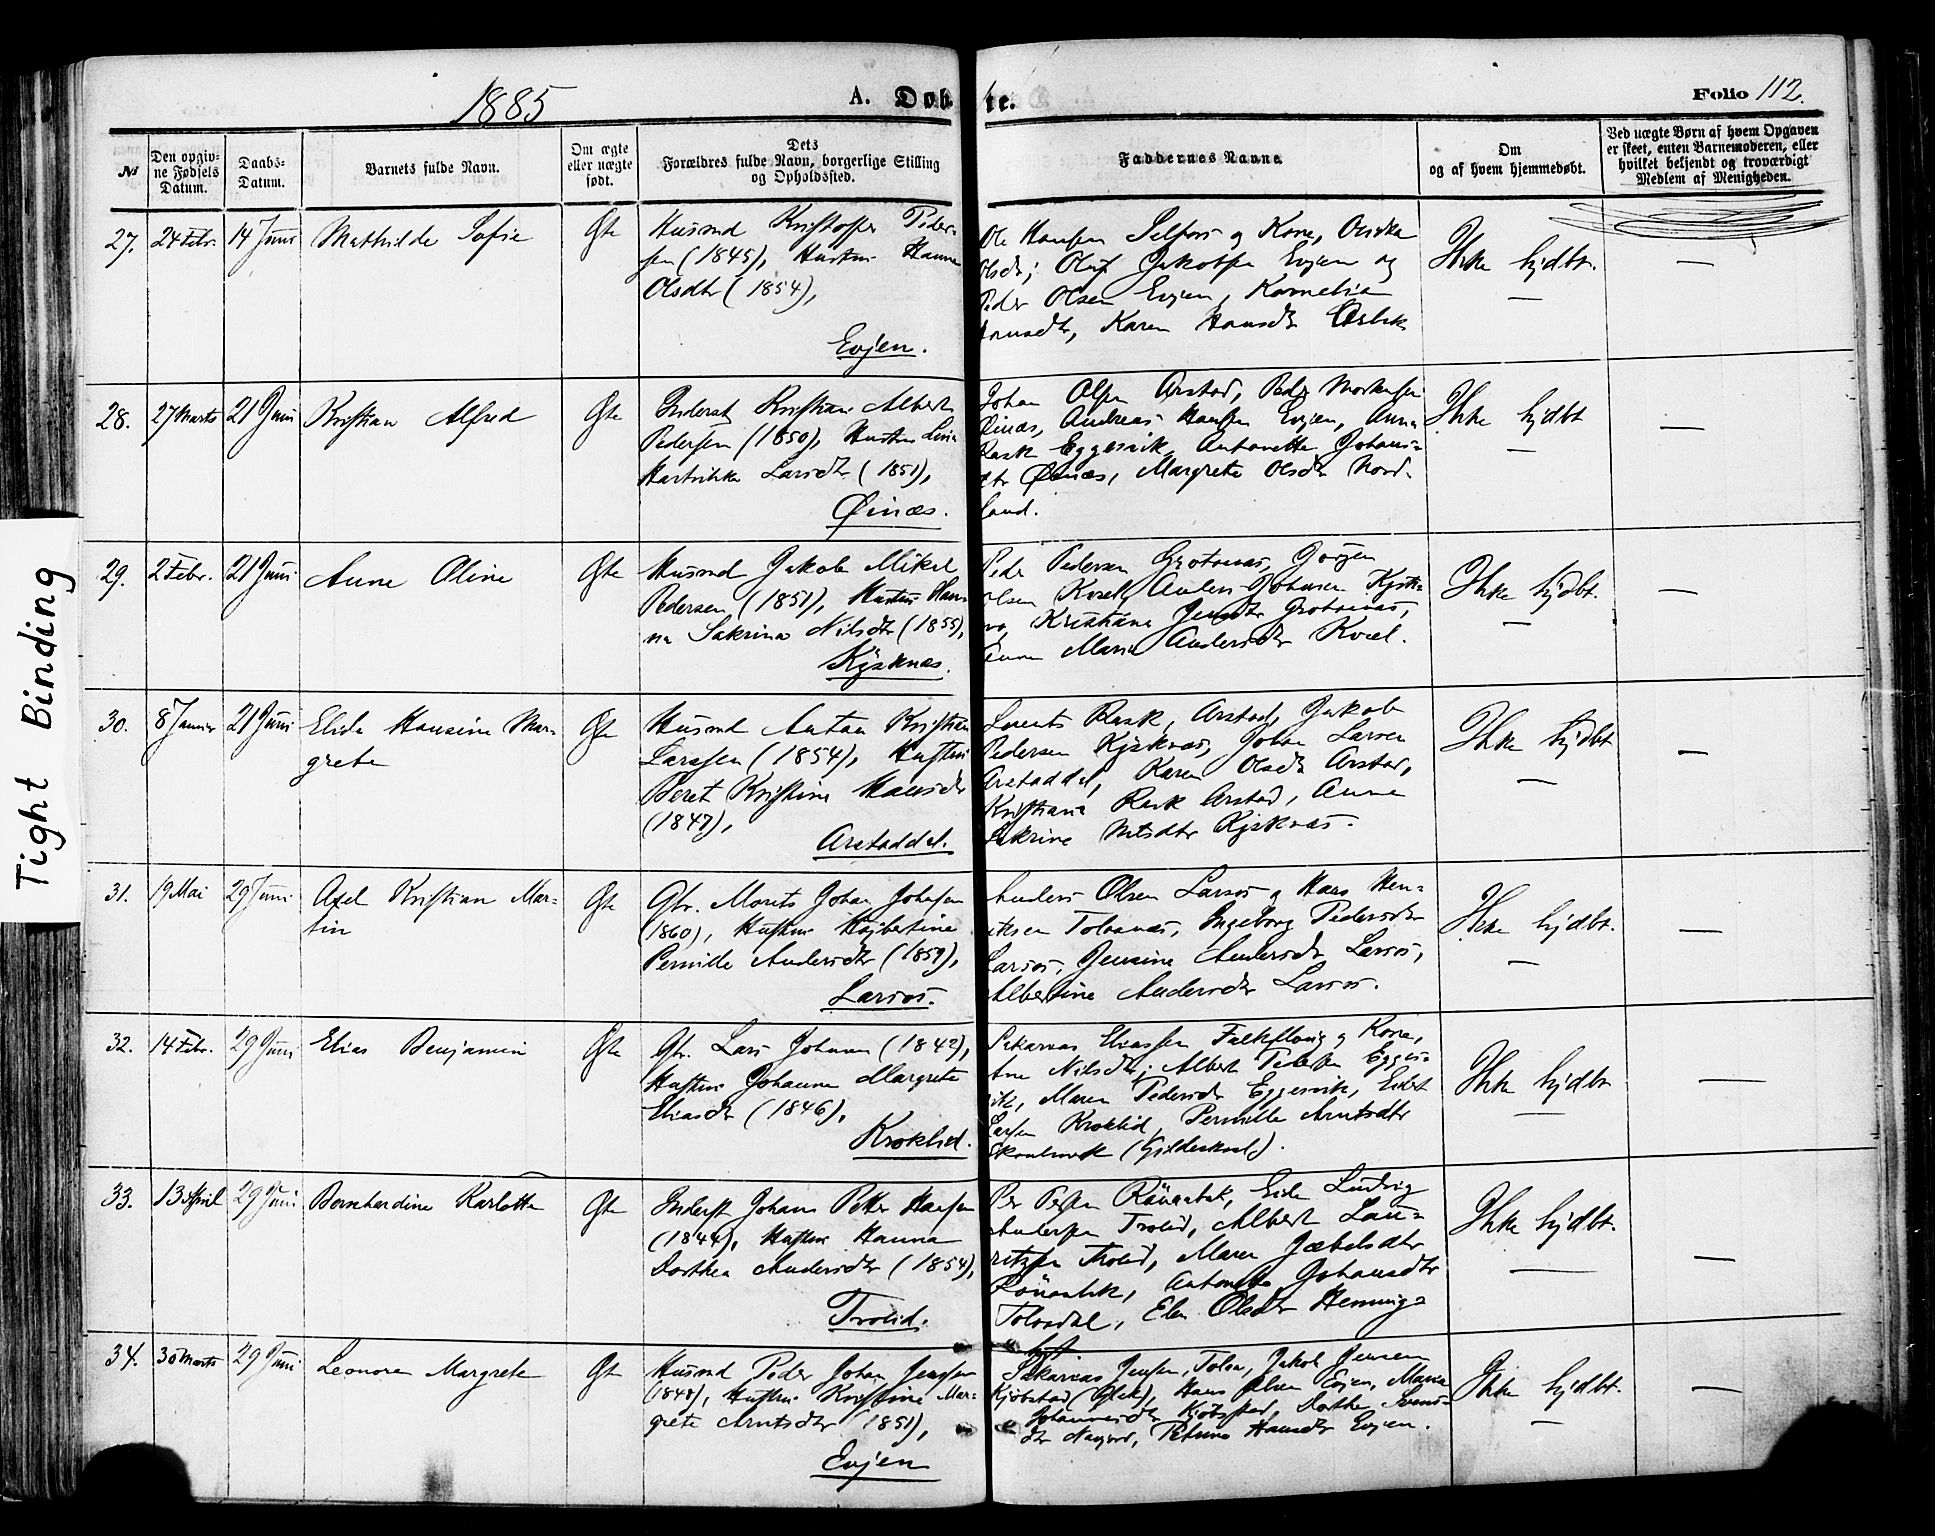 1885
A. Døbte.
Folio 112.
№
Den opgivne Fødsels Datum.
Daabs-Datum.
Barnets fulde Navn.
Om ægte eller uægte født.
Dets Forældres fulde Navn, borgerlige Stilling og Opholdssted.
Faddernes Navne.
Om og af hvem hjemmedøbt.
Ved uægte Børn af hvem Opgaven er skeet, enten Barnemoderen, eller hvilket bekjendt og troværdigt Medlem af Menigheden.
27. 24 Febr. 14 Juni Mathilde Sofie Ægte
Husmd Kristoffer Peder-
sen (1845), Hustru Hanna
Olsdtr (1854),
Evjen.
Ole Hansen Selfors og Kone,
Olsdtr; Oluf Jakobsen Evjen og
Peder Olsen Evjen, Kornelia
Hansdtr, Karen Hansdtr
Ikke hjdbt. —
28. 27 Marts 21 Juni Kristian Alfred Ægte
Inderst Kristian Albert
Pedersen (1850), Hustru Lina
Hartvikka Larsdtr (1851),
Øinæs.
Johan Olsen Arstad, Peder
Øinæs, Andreas Hansen Evjen, Anna
Rask Eggesvik, Antonette Johans-
dtr Øinæs, Margrete Olsdtr Nord-
land.
Ikke hjdbt —
29. 2 Febr. 21 Juni Anne Oline Ægte
Husmd Jakob Mikal
Pedersen (1851), Hustru Han-
na Sakrina Nilsdtr (1855),
Kjøknæs.
Peder Pedersen Grotnæs, Jørgen
Olsen Kvæl, Anders Johnsen
Kristiane Jensdtr Grotnæs,
Anne Maria Andersdtr Kvæl.
Ikke hjdbt. —
30. 8 Januar 21 Juni Elida Hansine Mar-
grete Ægte
Husmd Anton Kristian
Larssen (1854), Hustru
Beret Kristine Hansdtr
(1847),
Arstaddal.
Lorents Rask, Arstad, Jakob
Pedersen Kjøknæs, Johan Larsen
Arstaddal, Karen Olsdtr Arstad,
Kristiane Rask Arstad, Anne
Sakrine Nilsdtr Kjøknæs.
Ikke hjdbt —
31. 19 Mai 29 Juni Axel Kristian Mar-
tin Ægte
Gbr. Morits Johan Johnsen
(1860), Hustru Hojbertine
Pernille Andersdtr (1859),
Larsos.
Anders Olsen Larsos og Hans Hen-
riksen Tolvnæs, Ingeborg Pedersdtr
Larsos, Jensine Andersdtr Larsos,
Albertine Andersdtr Larsos.
Ikke hjdbt. —
32. 14 Febr. 29 Juni Elias Benjamin Ægte
Gbr. Lars Johann (1842),
Hustru Johanna Margrete
Eliasdtr (1846),
Kroklid.
Sakarias Eliassen Falkflaug og Kone,
Ane Nilsdtr; Albert Pedersen Egges-
vik, Maren Pedersdtr Eggesvik, Eidet
Larsen Kroklid, Pernille Arntsdtr
(Gildeskaal).
Ikke hjdbt —
33. 13 April 29 Juni Bernhardine Karlotte Ægte
Inderst Johan Petter Hansen
(1844), Hustru Hanna
Dorthea Andersdtr (1854),
Trolid.
Per Persen Rönaabek, Ludvig
Andersen Trolid, Albert Lau-
ritzen Trolid, Maren Jakobsdtr
Rönaabek, Antonette Johansdtr
Tolvadal, Elen Olsdtr Hennings-
Ikke hjdbt. —
34. 30 Marts 29 Juni Leonora Margrete Ægte
Husmd Peder Johan Jenssen
(1848), Hustru Kristine Mar-
grete Arntsdtr (1851),
Evjen
Sakarias Jensen, Tolva, Jakob Jensen
Kjøbstad, Hans Olsen Evjen, Maria
Johannesdtr Kjøbstad, Dorthe Svens-
dtr, Petrine Hansdtr Evjen.
Ikke hjdbt. —
Tight Binding